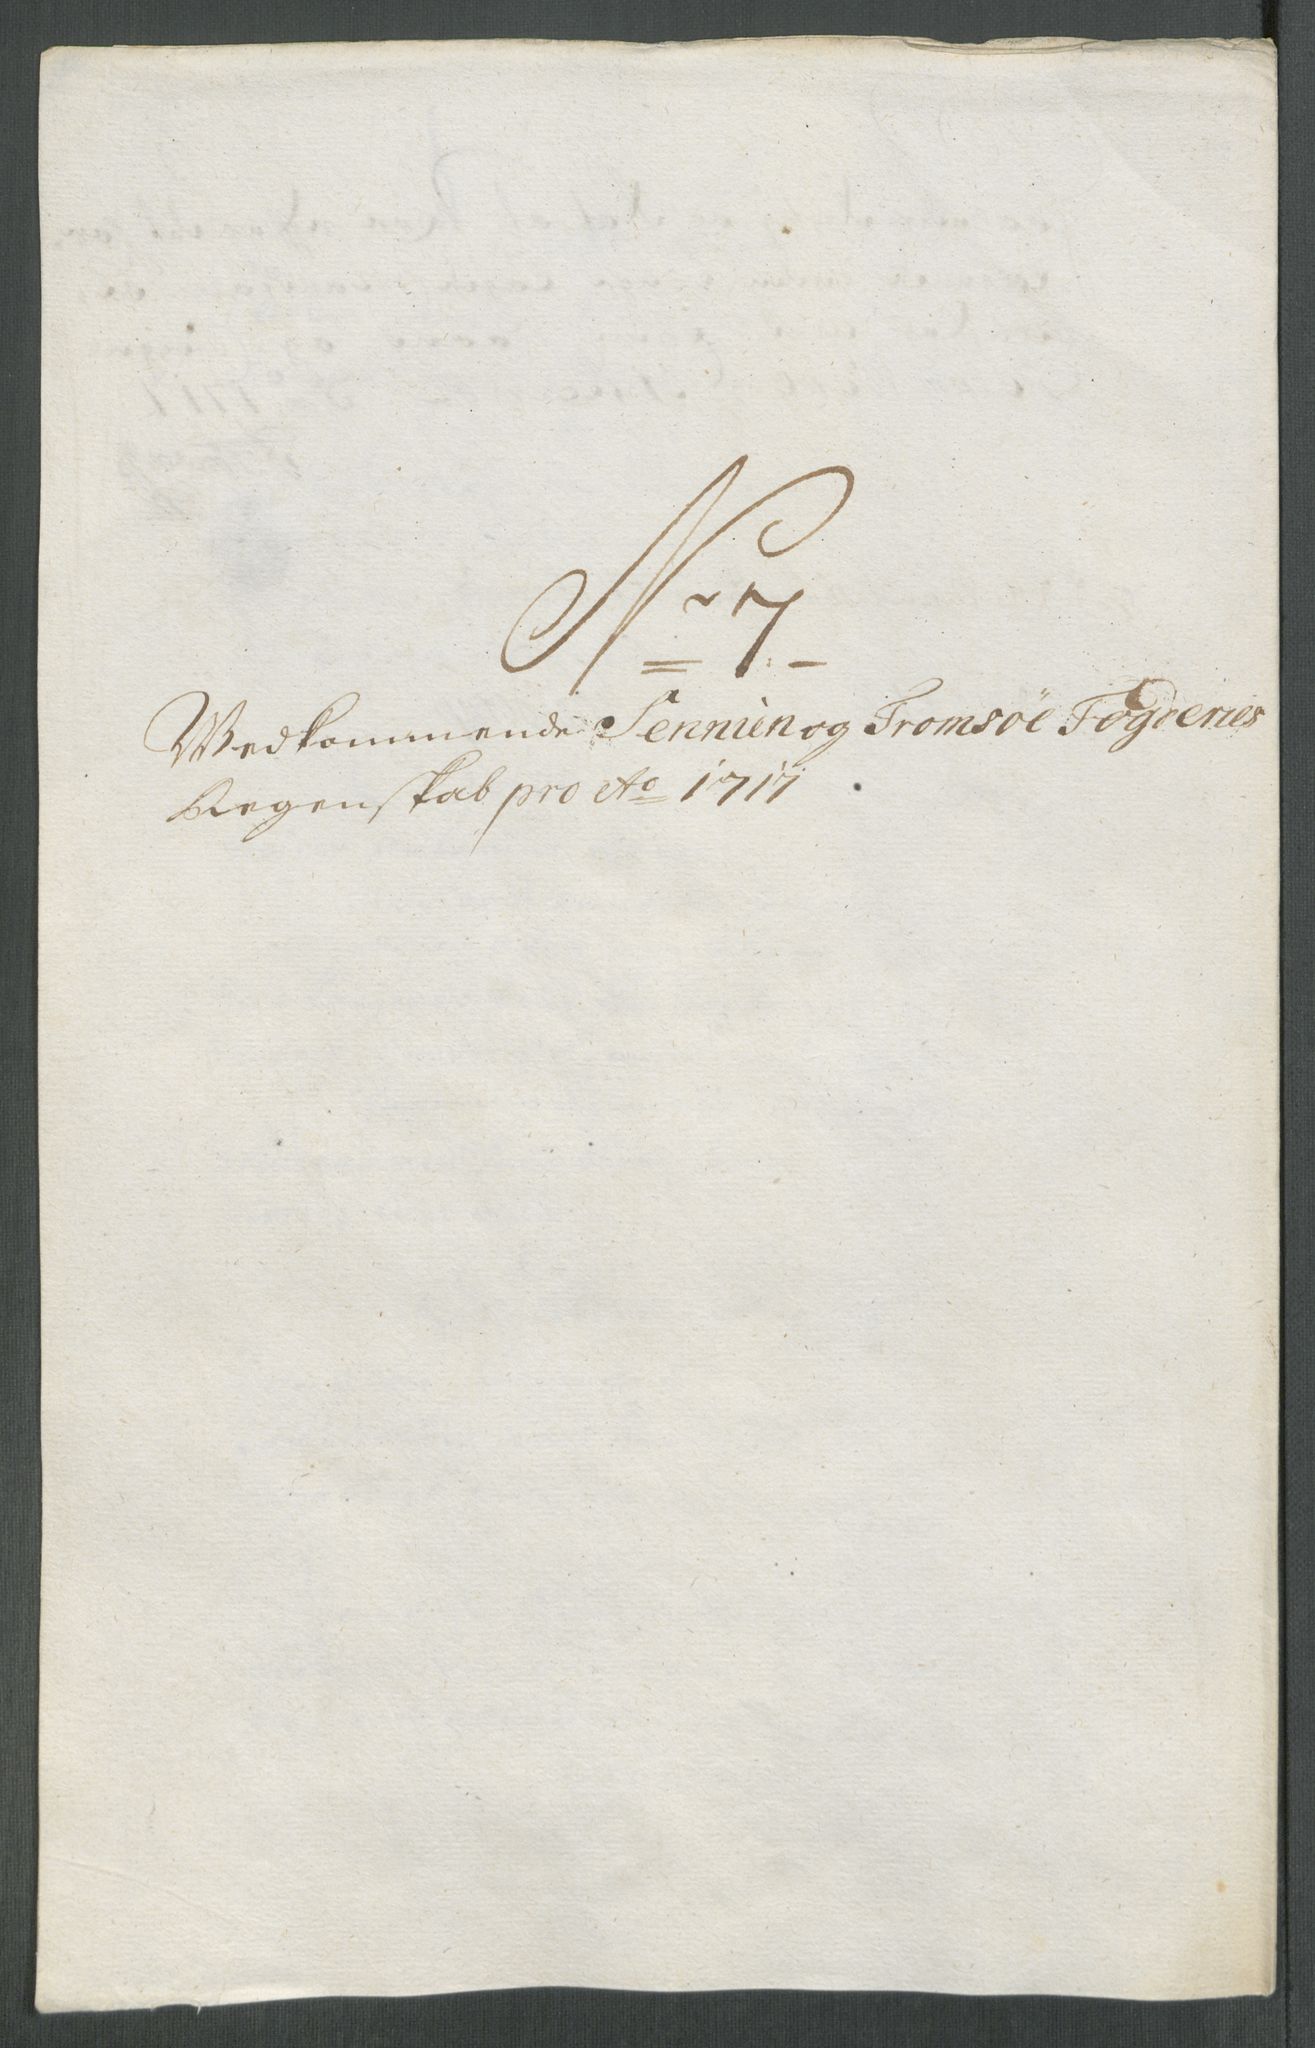 No 7
Wedkommende Sennien og Tromsöe Fogderies
Regenskab pro Ao 1717